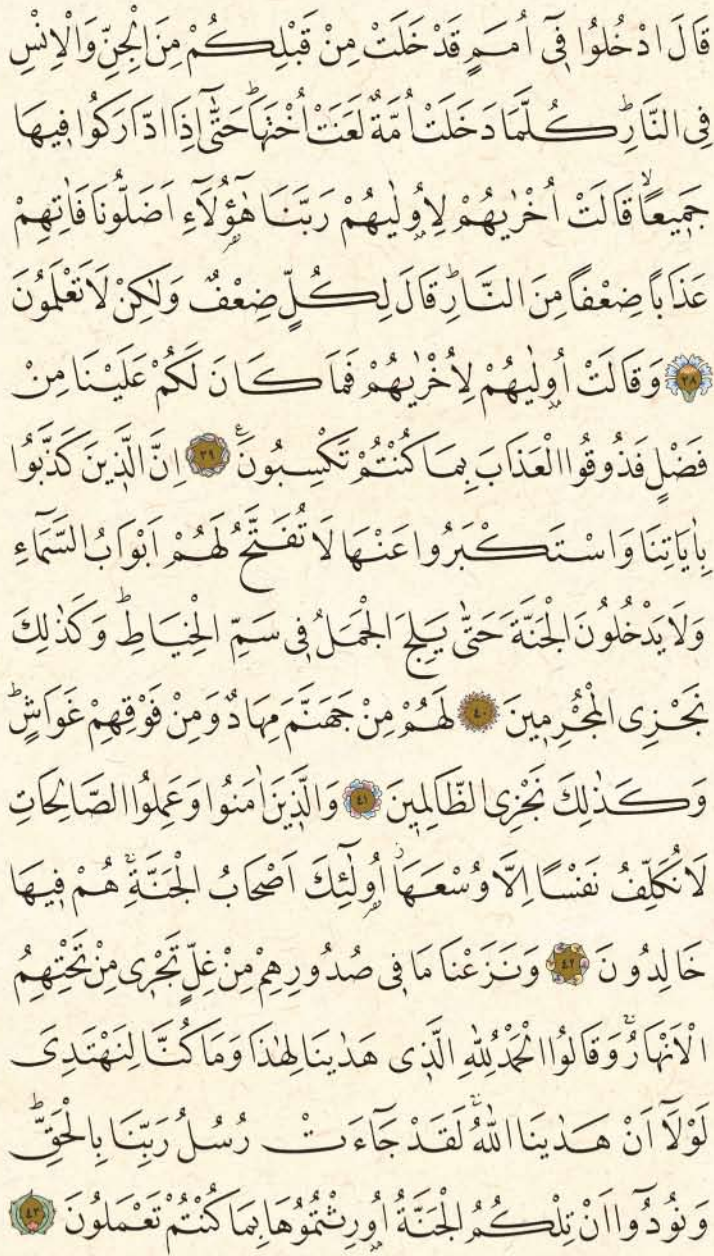 قَالَ ادْخُلُوا فٖٓي اُمَمٍ قَدْ خَلَتْ مِنْ قَبْلِكُمْ مِنَ الْجِنِّ وَالْاِنْسِ
فِي النَّارِؕ كُلَّمَا دَخَلَتْ اُمَّةٌ لَعَنَتْ اُخْتَهَاؕ حَتّٰٓى اِذَا ادَّارَكُوا فٖيهَا
جَمٖيعاًۙ قَالَتْ اُخْرٰيهُمْ لِاُو۫لٰيهُمْ رَبَّنَا هٰٓؤُ۬لَٓاءِ اَضَلُّونَا فَاٰتِهِمْ
عَذَاباً ضِعْفاً مِنَ النَّارِؕ قَالَ لِكُلٍّ ضِعْفٌ وَلٰكِنْ لَا تَعْلَمُونَ
٣٨ وَقَالَتْ اُو۫لٰيهُمْ لِاُخْرٰيهُمْ فَمَا كَانَ لَكُمْ عَلَيْنَا مِنْ
فَضْلٍ فَذُوقُوا الْعَذَابَ بِمَا كُنْتُمْ تَكْسِبُونَࣖ ٣٩ اِنَّ الَّذٖينَ كَذَّبُوا
بِاٰيَاتِنَا وَاسْتَكْبَرُوا عَنْهَا لَا تُفَتَّحُ لَهُمْ اَبْوَابُ السَّمَٓاءِ
وَلَا يَدْخُلُونَ الْجَنَّةَ حَتّٰى يَلِجَ الْجَمَلُ فٖي سَمِّ الْخِيَاطِؕ وَكَذٰلِكَ
نَجْزِي الْمُجْرِمٖينَ ٤٠ لَهُمْ مِنْ جَهَنَّمَ مِهَادٌ وَمِنْ فَوْقِهِمْ غَوَاشٍؕ
وَكَذٰلِكَ نَجْزِي الظَّالِمٖينَ ٤١ وَالَّذٖينَ اٰمَنُوا وَعَمِلُوا الصَّالِحَاتِ
لَا نُكَلِّفُ نَفْسًا اِلَّا وُسْعَهَاؗ اُو۬لٰٓئِكَ اَصْحَابُ الْجَنَّةِۚ هُمْ فٖيهَا
خَالِدُونَ ٤٢ وَنَزَعْنَا مَا فٖي صُدُورِهِمْ مِنْ غِلٍّ تَجْرٖي مِنْ تَحْتِهِمُ
الْاَنْهَارُۚ وَقَالُوا الْحَمْدُ لِلّٰهِ الَّذٖي هَدٰينَا لِهٰذَا وَمَا كُنَّا لِنَهْتَدِيَ
لَوْلَٓا اَنْ هَدٰينَا اللّٰهُۚ لَقَدْ جَٓاءَتْ رُسُلُ رَبِّنَا بِالْحَقِّؕ
وَنُودُٓوا اَنْ تِلْكُمُ الْجَنَّةُ اُو۫رِثْتُمُوهَا بِمَا كُنْتُمْ تَعْمَلُونَ ٤٣